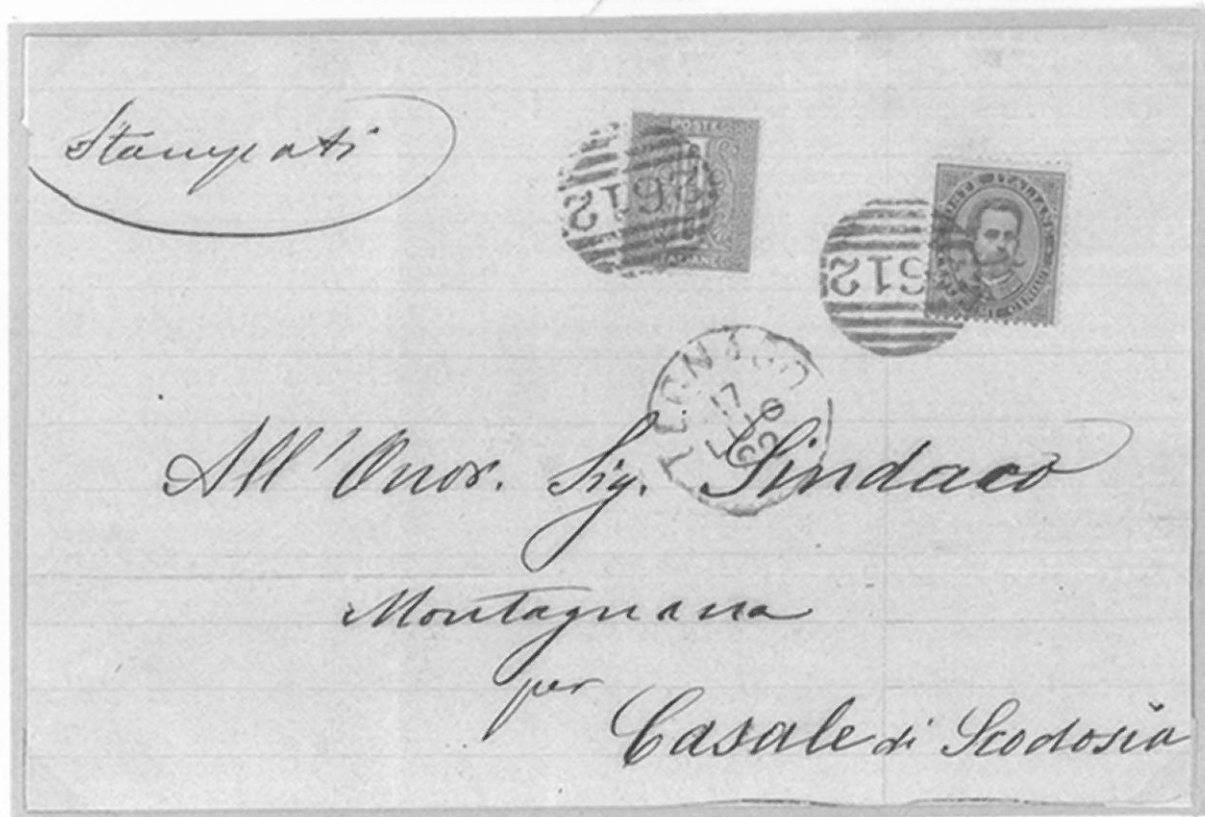 Stampati
POSTE
2612
612
LEGNAGO
17
All' Onor. Sig. Sindaco
Montagnana
per
Casale di Scodosia